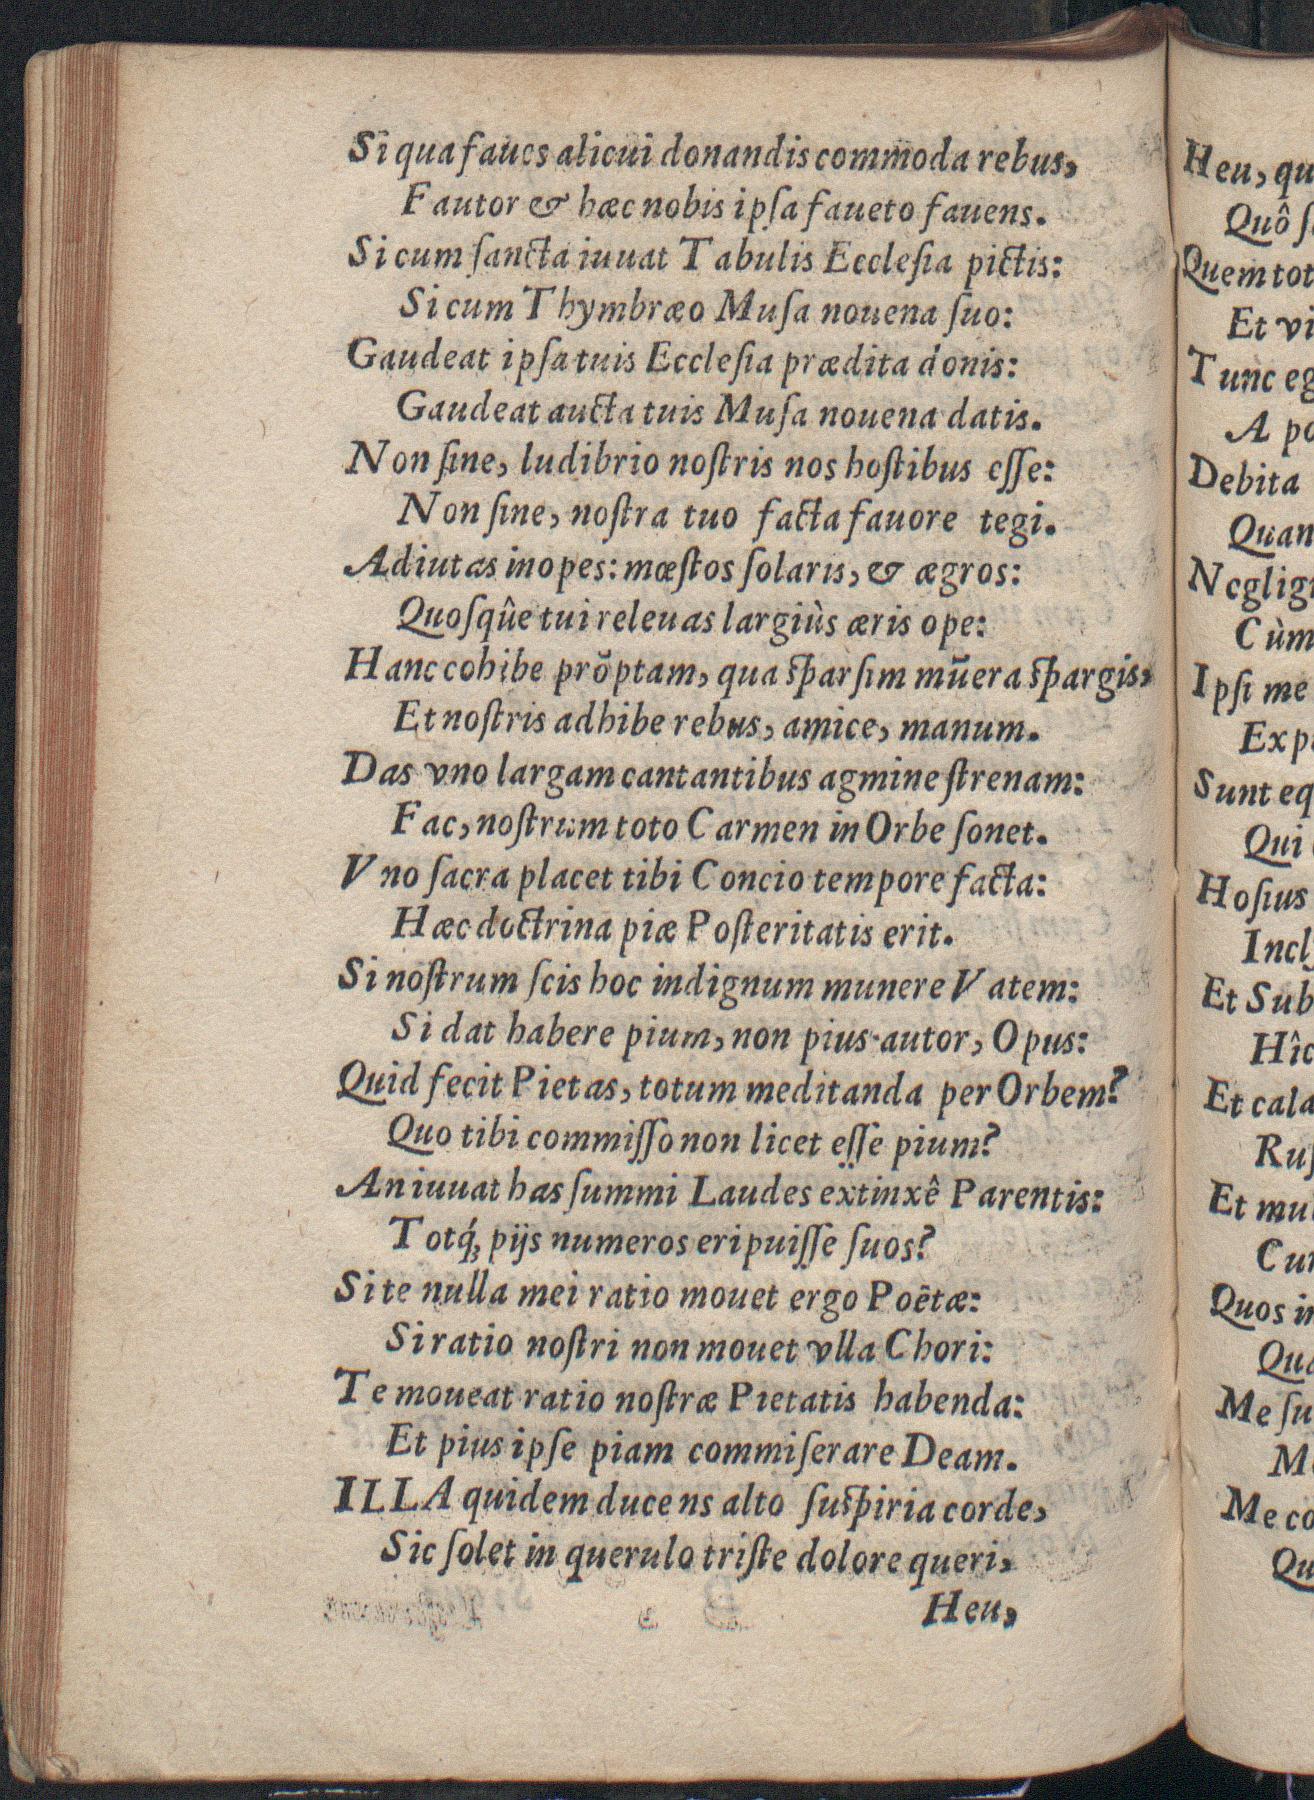 Si qua faues alicui donandis commoda rebus,
Fautor & hæc nobis ipſa faueto fauens.
Si cum ſancta iuuat Tabulis Eccleſia pictis:
Si cum Thymbræo Muſa nouena ſuo:
Gaudeat ipſa tuis Eccleſia prædita donis:
Gaudeat aucta tuis Muſa nouena datis.
Non ſine, ludibrio noſtris nos hoſtibus eſſe:
Non ſine, noſtra tuo facta fauore tegi.
Adiutas inopes: mœſtos ſolaris, & ægros:
Quoſqûe tui releuas largiùs æris ope:
Hanc cohibe prõptam, qua ſparſim mũera ſpargis,
Et noſtris adhibe rebus, amice, manum.
Das vno largam cantantibus agmine ſtrenam:
Fac, noſtrum toto Carmen in Orbe ſonet.
Vno ſacra placet tibi Concio tempore facta:
Hæc doctrina piæ Poſteritatis erit.
Si noſtrum ſcis hoc indignum munere Vatem:
Si dat habere pium, non pius autor, Opus:
Quid fecit Pietas, totum meditanda per Orbem?
Quo tibi commiſſo non licet eſſe pium?
An iuuat has ſummi Laudes extinxê Parentis:
Totq́; pijs numeros eripuiſſe ſuos?
Si te nulla mei ratio mouet ergo Poëtæ:
Si ratio noſtri non mouet vlla Chori:
Te moueat ratio noſtræ Pietatis habenda:
Et pius ipſe piam commiſerare Deam.
ILLA quidem ducens alto ſuſpiria corde,
Sic ſolet in querulo triſte dolore queri,
Heu,
Heu, qu
Quô ſ
Quem tot
Et vi
Tunc eg
A po
Debita
Quan
Negligi
Cùm
Ipſi me
Exp
Sunt eq
Qui
Hoſius
Incl
Et Sub
Hîc
Et cala
Ruſ
Et mu
Cu
Quos i
Qu
Me ſu
M
Me co
Qu